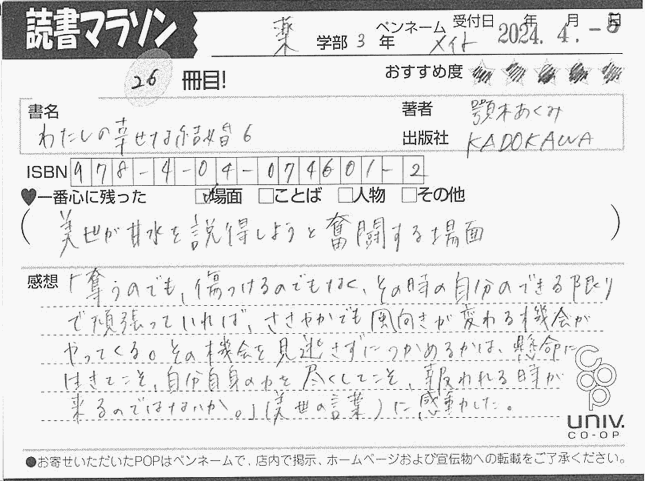 読書マラソン
薬 学部 3 年 ペンネーム メイト 受付日 2024. 4. -5 年 月 日
26 冊目! おすすめ度
書名 わたしの幸せな結婚 6
著者 顎木あくみ
出版社 KADOKAWA
ISBN 978-4-04-074601-2
♥一番心に残った ☑場面 □ことば □人物 □その他
(美世が甘水を説得しようと奮闘する場面)
感想 「奪うのでも、傷つけるのでもなく、その時の自分のできる限り
で頑張っていれば、ささやかでも風向きが変わる機会が
やってくる。その機会を見逃さずにつかめるかは、懸命に
生きてこそ、自分自身の力を尽くしてこそ、報われる時が
来るのではないか。」(美世の言葉)に感動した。
coop
UNIV.
CO-OP
●お寄せいただいたPOPはペンネームで、店内で掲示、ホームページおよび宣伝物への転載をご了承ください。